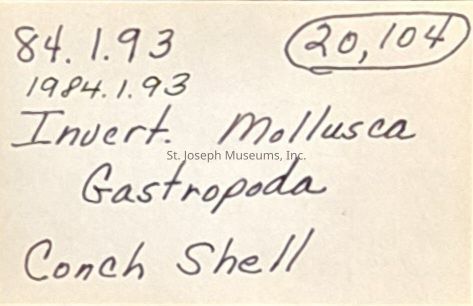 84.1.93 20,104
1984.1.93
Invert. Mollusca
St. Joseph Museums, Inc.
Gastropoda
Conch Shell